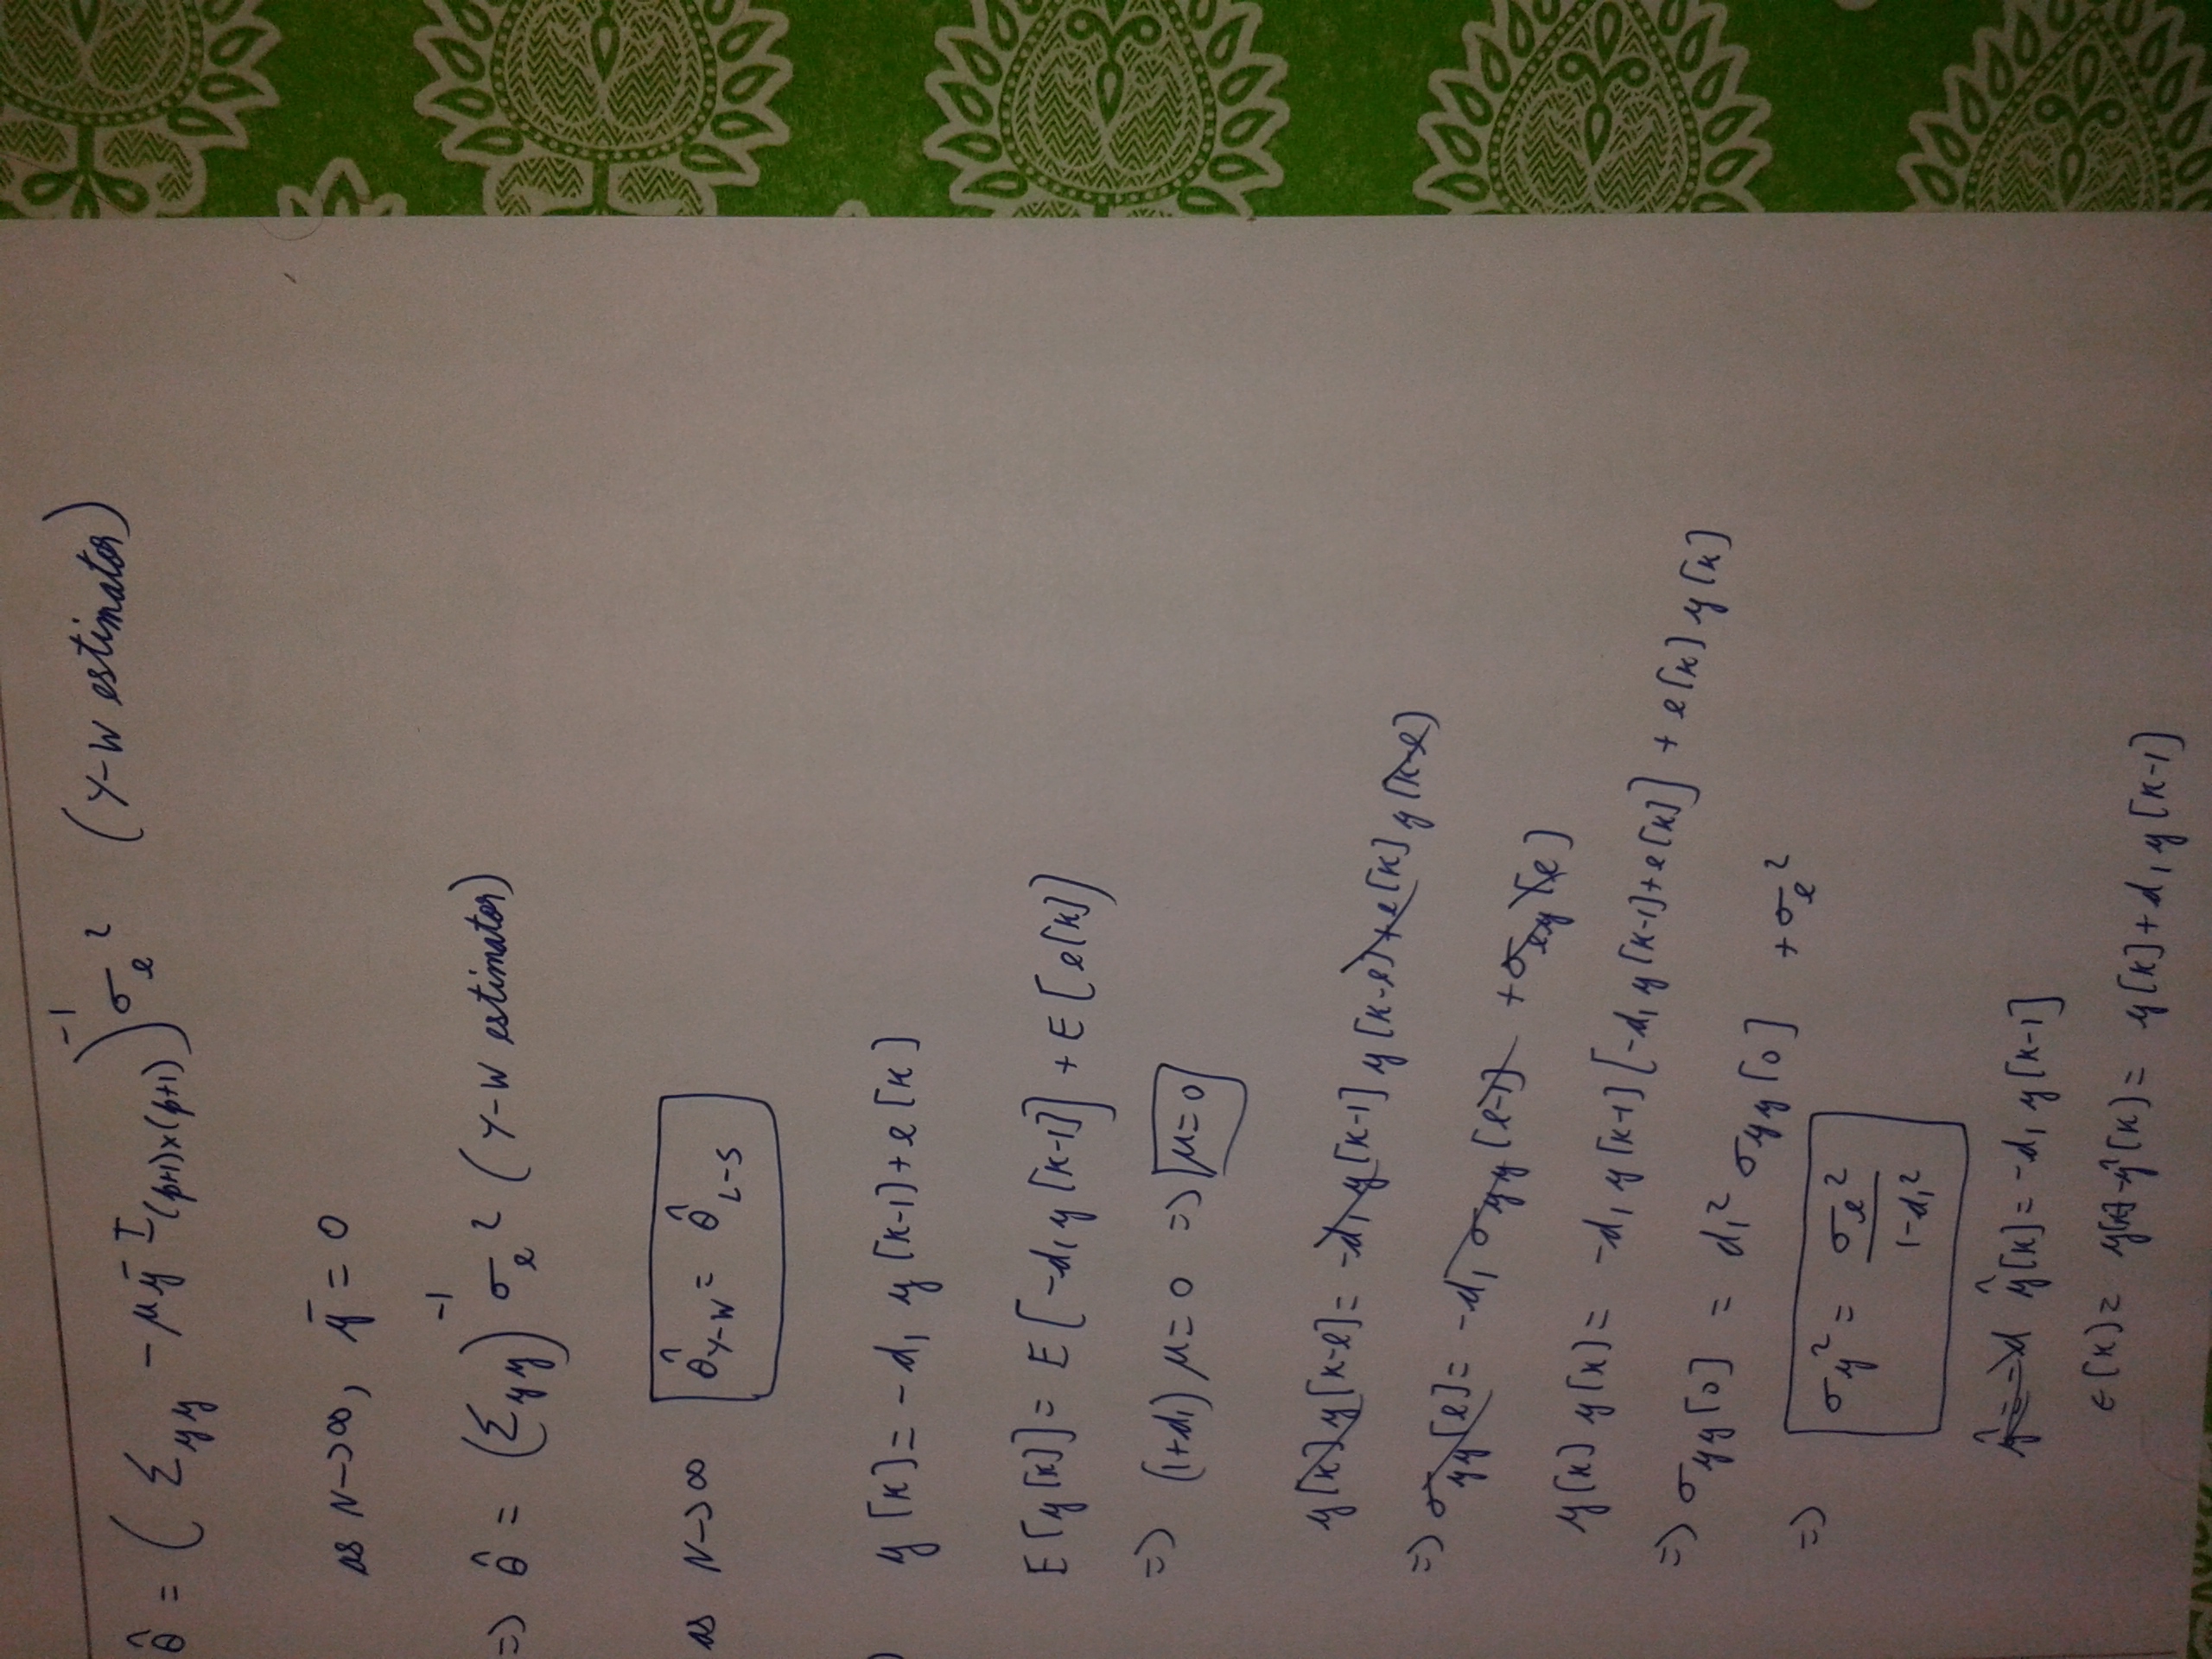 θ̂ = (Σ_yy − μ_ȳ I_(p+1)×(p+1))^-1 σ_e^2 (Y-W estimator)
as N→∞, ȳ = 0
=) θ̂ = (Σ_yy)^-1 σ_e^2 (Y-W estimator)
as N→∞ θ̂_Y-W = θ̂_L-S
y[k] = -d_1 y[k-1] + e[k]
E[y[k]] = E[-d_1 y[k-1]] + E[e[k]]
=) (1+d_1) μ = 0 =) μ = 0
y[k] y[k-l] = -d_1 y[k-1] y[k-l] + e[k] y[k-l]
=) σ_yy[l] = -d_1 σ_yy[l-1] + σ_ey[l]
y[k] y[k] = -d_1 y[k-1][-d_1 y[k-1] + e[k]] + e[k] y[k]
=) σ_yy[0] = d_1^2 σ_yy[0] + σ_e^2
=)
σ_y^2 = σ_e^2 / (1-d_1^2)
ŷ[k] = -d_1 y[k-1]
ε[k] = y[k] - ŷ[k] = y[k] + d_1 y[k-1]